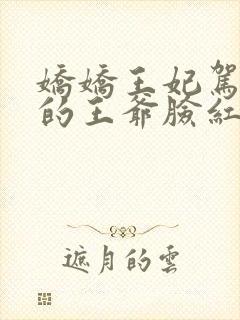 嬌嬌王妃駕
的王爺臉紅
遮月的雲